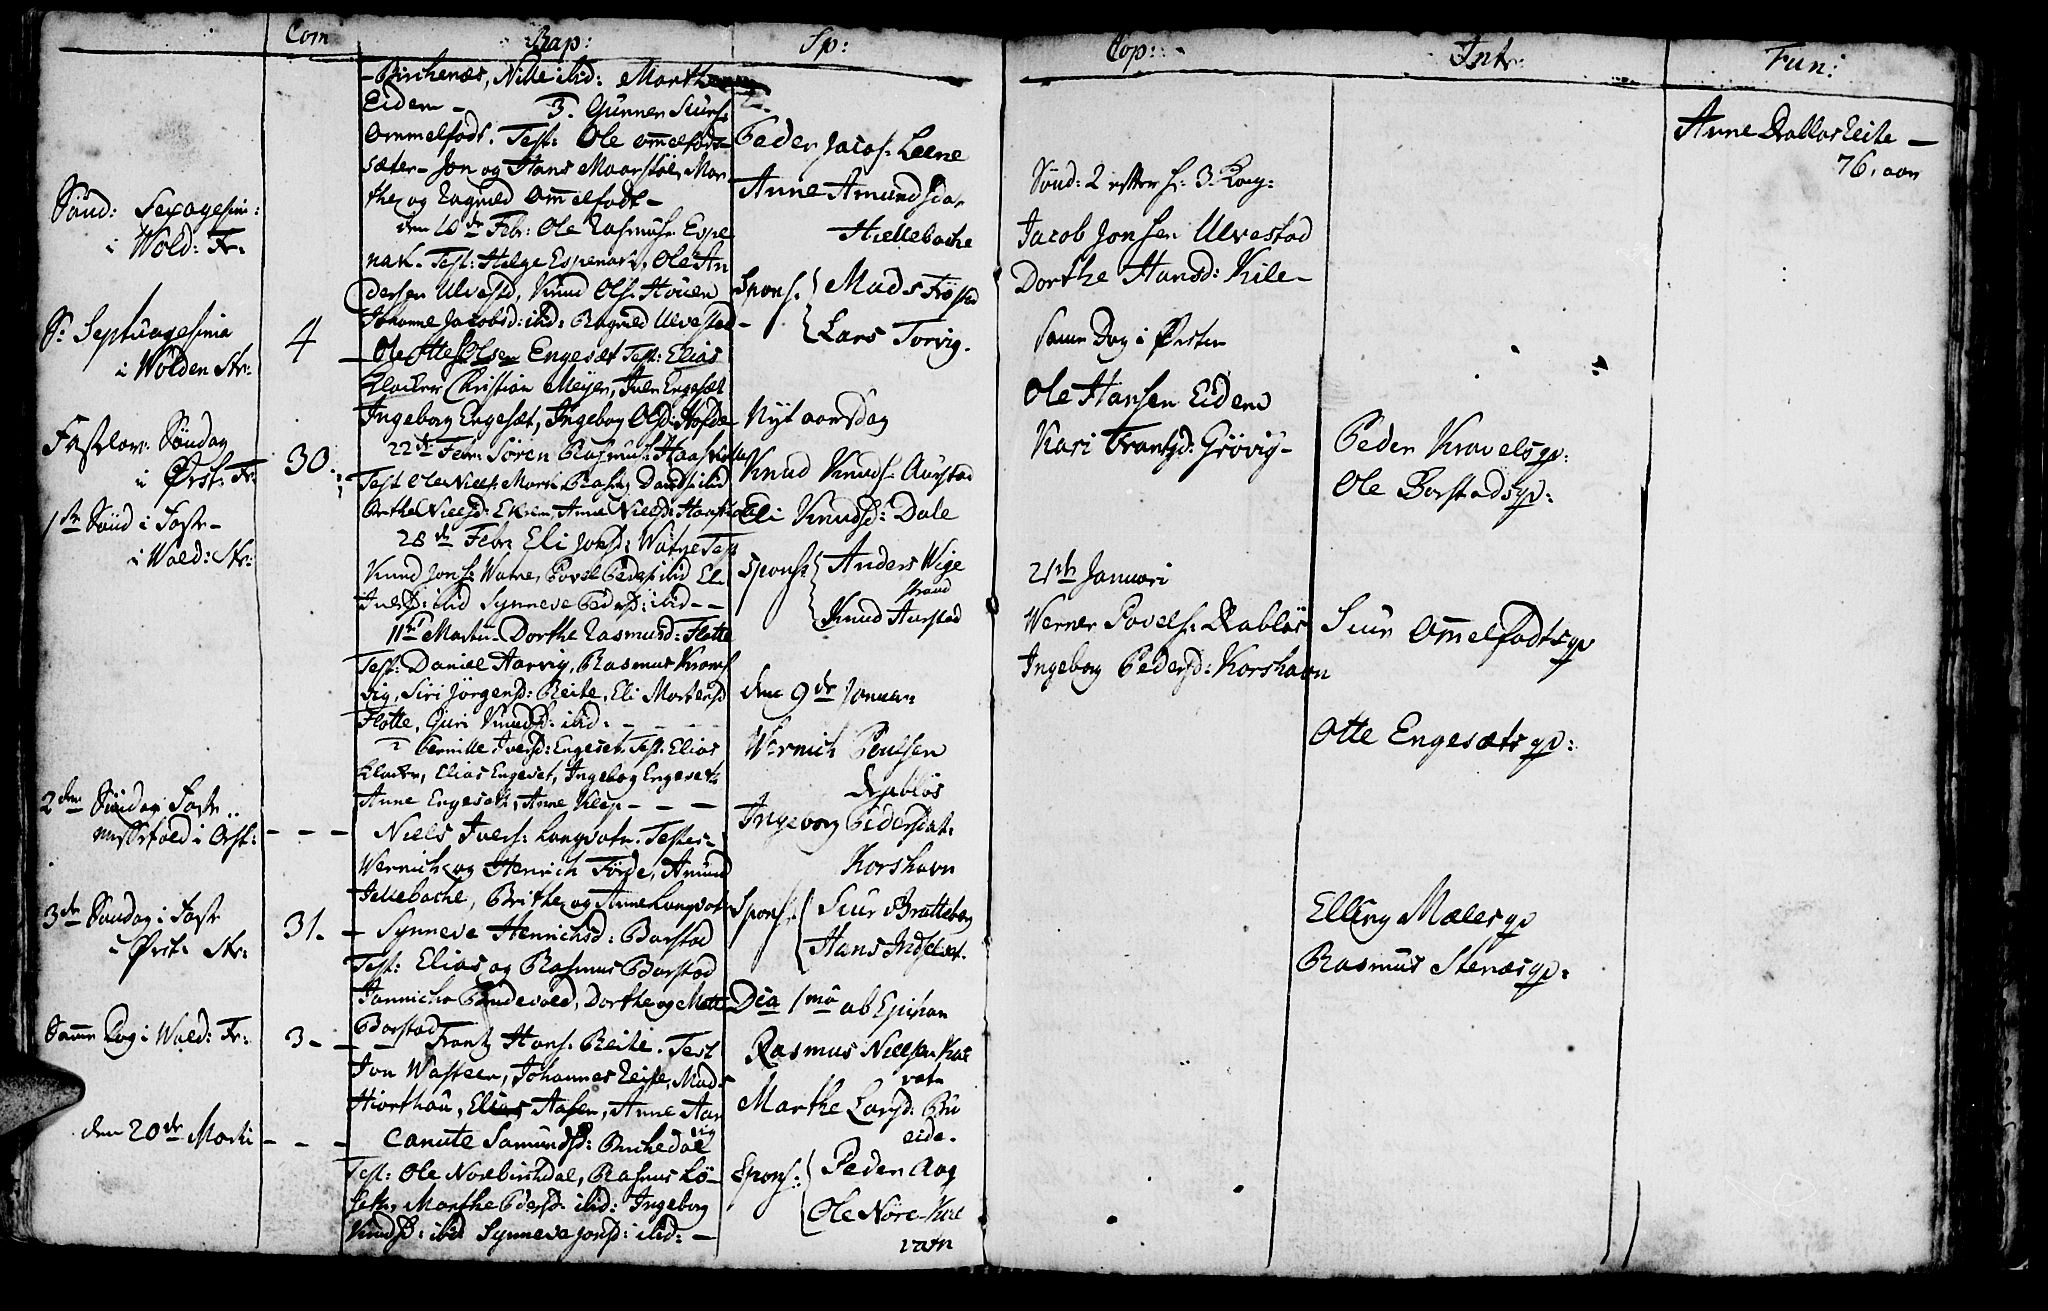 Com
Bap:
Sp:
Cop:
Intr:
Fun:
Sönd: Sexagesim:
i Wold: Fr:
S: Septuagesima
i Wolden Str:
4
Fastelav: Söndag
i Ørst: Fr:
30.
1ste Sönd i Fast-
i Wold: Str:
2den Söndag i Fast
messefald i Ørst: - - -
3de Söndag i Fast
i Ørst: Str:
31. -
Samme Dag i Wold: Fr:
3 - - -
den 20de Marti - - -
Birchenæs, Nille ibid: Marthe
Eidem - 3. Gunner Siurs:
Ommelfodt. Test: Ole Ommelfodt
sæter - Jon og Hans Maarstöl, Mar
the og Ragnild Ommelfodt -
den 16de Febr: Ole Rasmus: Espe
nak. Test: Helge Espenak, Ole An
dersen Ulvestd, Knud Ols: Houen
Johanne Jacobsd: ibid: Ragnild Ulvestad -
Ole Otte Olsen Engeset Test: Elias
Klocker Christian Meyer, Iver Engeset
Ingeborg Engeset, Ingeborg Olsd: Hofde
22de Febr: Sören Rasmus: Haaskiold
Test Ole Niels: Marn Rasm: Dauds ibid
Berthe Nielsd: Ekrem, Anne Nielsd: Haaskiold
28de Febr: Eli Jonsd: Watne Test
Knud Jons: Watne, Povel Peders: ibid El
Iversd: ibid Synneve Pedersd: ibid - -
11te Martii - Dorthe Rasmusd: Flotte
Test: Daniel Aarvig, Rasmus Krums
vig, Siri Jörgensd: Reite, Eli Mortensd
Flotte, Guri Knudsd: ibid: - - - -
Pernille Iversd: Engeset Test: Elias
Klocker, Elias Engeset, Ingeborg Engeset
Anne Engeset, Anne Klep - - -
Niels Ivers: Langvatn. Testes:
Wernich og Henrich Förde, Amund
Jellebache, Brithe og Anne Langvatn
Synneve Henrichsd: Barstad
Test: Elias og Rasmus Barstad
Jannicho Brudevold, Dorthe og Mette
Barstad
Frantz Hans: Reite. Test
Jon Wasteen, Johannes Reite, Mads
Hiorthau, Elias Aasen, Anne Aar
vig
Canute Samundsd: Birchedal
Test: Ole Norebirchdal, Rasmus Lö-
seth, Marthe Pedersd ibid: Ingeborg
Knudsd: ibid Synneve Jonsd: ibid: -
Peder Jacobs: Leene
Anne Amundsda.
Hellebache
Spons: Mads Frøstad
Lars Torvig.
Nyt aarsdag
Knud Knuds: Aarstad
Eli Knudsd: Dale
Spons: Anders Wige
strand
Knud Aarstad
den 9de Januari
Wernich Poulsen
Rabløs
Ingeborg Pedersdat:
Korshavn
Spons: Siur Bratteberg
Hans Indselset.
Dca 1mo ab Epiphan
Rasmus Nielsen Kal
vatn
Marthe Larsd: Bü
eide.
Spons: Peder Aag
Ole Nöre-Kal
vatn
Sönd: 2 efter H: 3. Kong:
Jacob Jonsen Ulvestad
Dorthe Hansd: Kile -
samme Dag i Ørsten
Ole Hansen Eidem
Kari Frantzd: Grövig -
21de Januari
Werner Povels: Rabløs
Ingeborg Pedersd: Korshavn
Peder Kravelsqv:
Ole Barstadsqv:
Siur Ommelfodtsqv
Otte Engesætsqv:
Elling Mælesqv
Rasmus Stenæsqv:
Anne Rabløs Leite -
76. aar